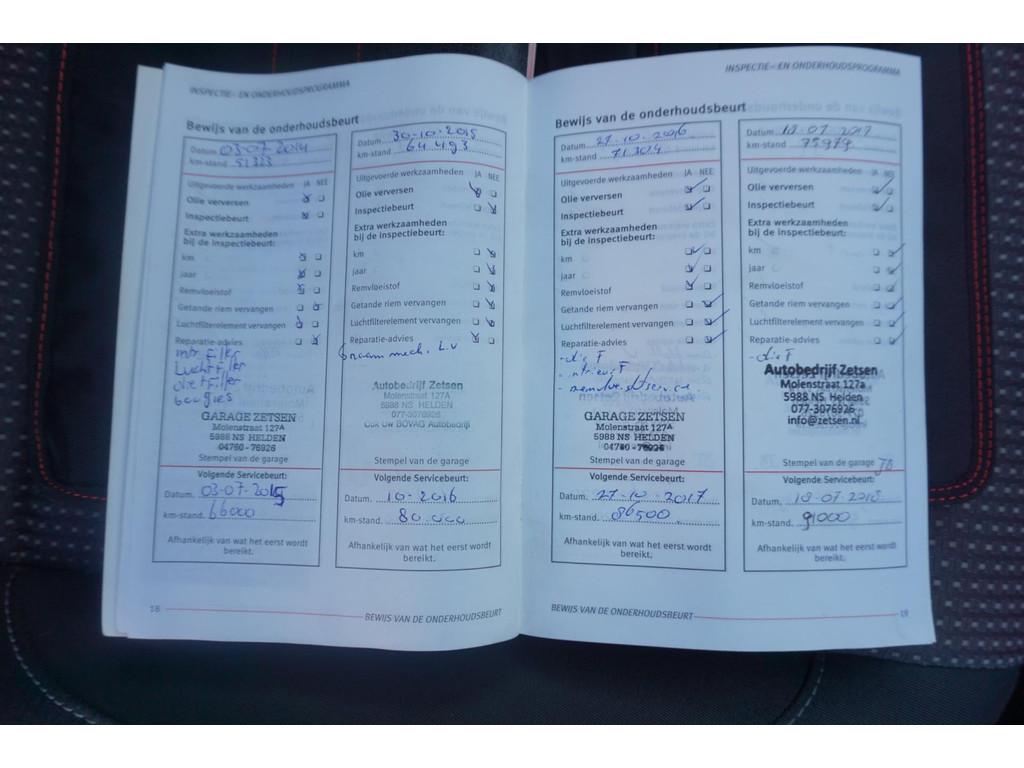 INSPECTIE- EN ONDERHOUDSPROGRAMMA
Bewijs van de onderhoudsbeurt
Datum 03-07-2014
km-stand 51323
Uitgevoerde werkzaamheden JA NEE
Olie verversen
Inspectiebeurt
Extra werkzaamheden
bij de inspectiebeurt:
km
jaar
Remvloeistof
Getande riem vervangen
Luchtfilterelement vervangen
Reparatie-advies
intr Filter
Lucht Filter
olie Filter
bougies
GARAGE ZETSEN
Molenstraat 127A
5988 NS HELDEN
04760 - 76926
Stempel van de garage
Volgende Servicebeurt:
Datum. 03-07-2015
km-stand. 66000
Afhankelijk van wat het eerst wordt
bereikt.
Datum 30-10-2015
km-stand 64493
Uitgevoerde werkzaamheden JA NEE
Olie verversen
Inspectiebeurt
Extra werkzaamheden
bij de inspectiebeurt:
km
jaar
Remvloeistof
Getande riem vervangen
Luchtfilterelement vervangen
Reparatie-advies
mech. L.V
Autobedrijf Zetsen
Molenstraat 127A
5988 NS HELDEN
077-3076926
Ook Uw BOVAG Autobedrijf
Stempel van de garage
Volgende Servicebeurt:
Datum. 10-2016
km-stand. 80.000
Afhankelijk van wat het eerst wordt
bereikt.
18
BEWIJS VAN DE ONDERHOUDSBEURT
INSPECTIE- EN ONDERHOUDSPROGRAMMA
Bewijs van de onderhoudsbeurt
Datum 27-10-2016
km-stand 71304
Uitgevoerde werkzaamheden JA NEE
Olie verversen
Inspectiebeurt
Extra werkzaamheden
bij de inspectiebeurt:
km
jaar
Remvloeistof
Getande riem vervangen
Luchtfilterelement vervangen
Reparatie-advies
- olie F
- intrieur F
GARAGE ZETSEN
Molenstraat 127A
5988 NS HELDEN
04760 - 76926
Stempel van de garage
Volgende Servicebeurt:
Datum. 27-10-2017
km-stand. 86500
Afhankelijk van wat het eerst wordt
bereikt.
Datum 18-07-2017
km-stand 75979
Uitgevoerde werkzaamheden JA NEE
Olie verversen
Inspectiebeurt
Extra werkzaamheden
bij de inspectiebeurt:
km
jaar
Remvloeistof
Getande riem vervangen
Luchtfilterelement vervangen
Reparatie-advies
- olie F
Autobedrijf Zetsen
Molenstraat 127a
5988 NS Helden
077-3076926
info@zetsen.nl
Stempel van de garage
Volgende Servicebeurt:
Datum. 18-07-2018
km-stand. 91000
Afhankelijk van wat het eerst wordt
bereikt.
BEWIJS VAN DE ONDERHOUDSBEURT
19